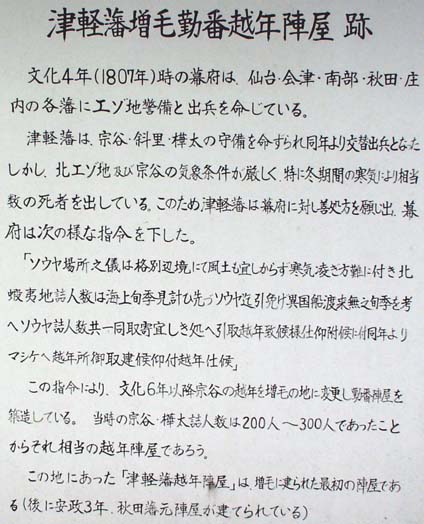 津軽藩増毛勤番越年陣屋 跡
文化4年(1807年)時の幕府は、仙台・会津・南部・秋田・庄
内の各藩にエゾ地警備と出兵を命じている。
津軽藩は、宗谷・斜里・樺太の守備を命ずられ同年より交替出兵となった
しかし、北エゾ地及び宗谷の気象条件が厳しく、特に冬期間の寒気により相当
数の死者を出している。このため津軽藩は幕府に対し善処方を願い出、幕
府は次の様な指令を下した。
「ソウヤ場所之儀は格別辺境にて風土も宜しからず寒気凌ぎ方難に付き北
蝦夷地詰人数は海上旬季見計ひ先づソウヤ迄引免け異国船渡来無之旬季を考
へソウヤ詰人数共一同取寄宜しき処へ引取越年致候様仕仰附候に付同年より
マシケへ越年所御取建候仰付越年仕候」
この指令により、文化6年以降宗谷の越年を増毛の地に変更し勤番陣屋を
築造している。 当時の宗谷・樺太詰人数は200人〜300人であったこと
からそれ相当の越年陣屋であろう。
この地にあった「津軽藩越年陣屋」は、増毛に建られた最初の陣屋であ
る(後に安政3年、秋田藩元陣屋が建てられている)